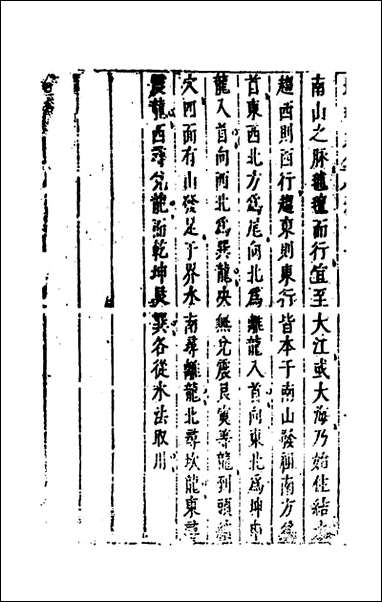 南山之脉䡾䡾而行直至大江或大海乃始住結
趨西則西行趨東則東行皆本于南山發祖南方為
首東西北方為尾向北為離龍入首向東北為坤
龍入首向西北為巽龍決無兌震艮寅等龍到頭
穴四面有山發足于界水南尋離龍北尋坎龍東尋
震龍西尋兌龍而乾坤艮巽各從水法取用